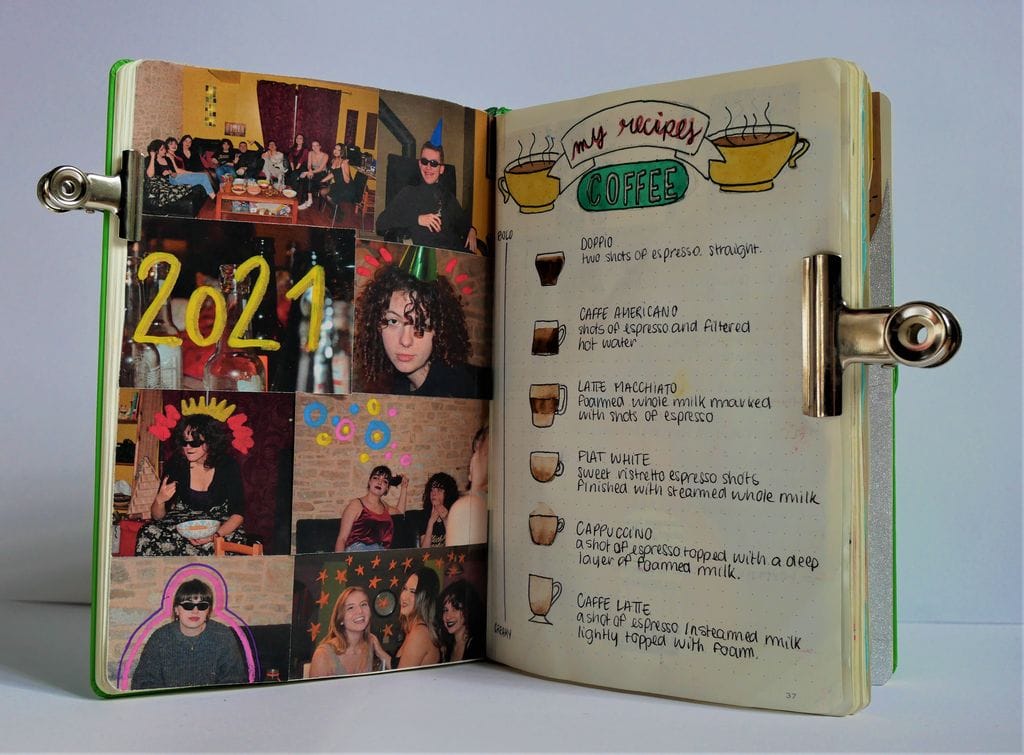 2021
my recipes
COFFEE
BOLD
DOPPIO
two shots of espresso. straight.
CAFFE AMERICANO
shots of espresso and filtered
hot water
LATTE MACCHIATO
Foamed whole milk marked
with shots of espresso
FLAT WHITE
sweet ristretto espresso shots
finished with steamed whole milk
CAPPUCCINO
a shot of espresso topped with a deep
layer of foamed milk.
CAFFE LATTE
a shot of espresso in steamed milk
lightly topped with foam.
CREAMY
37